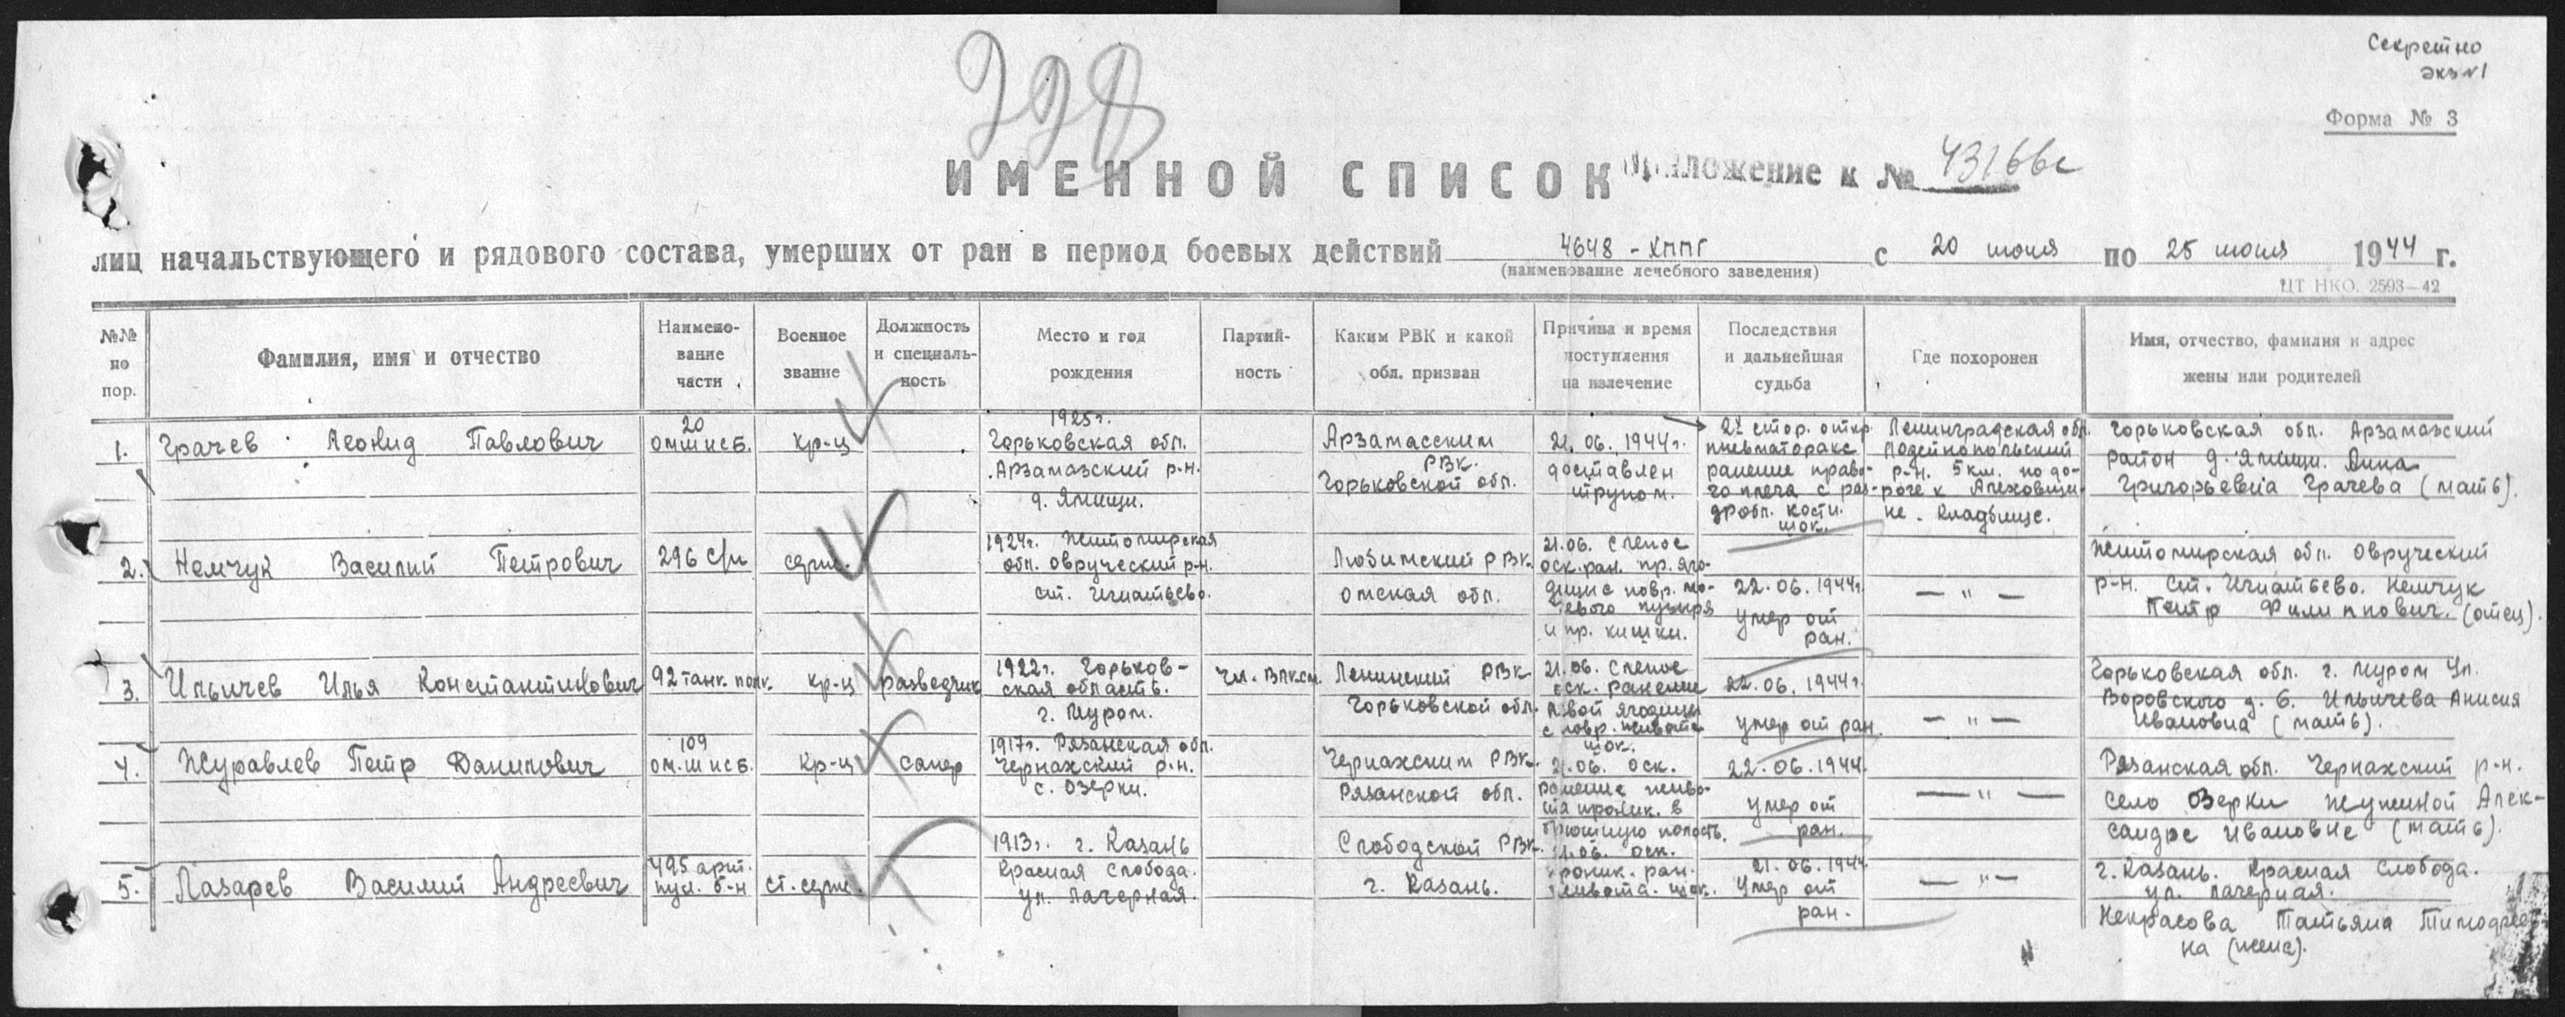 Секретно
экз №1
Форма № 3
398
ИМЕННОЙ СПИСОК
Приложение к № 43166с
лиц начальствующего и рядового состава, умерших от ран в период боевых действий 4648 - ХППГ с 20 июня по 25 июня 1944 г.
(наименование лечебного заведения)
ЦТ НКО. 2593—42
№№ по пор.
Фамилия, имя и отчество
Наимено-
вание
части
Военное
звание
Должность
и специаль-
ность
Место и год
рождения
Партий-
ность
Каким РВК и какой
обл. призван
Причина и время
поступления
на излечение
Последствия
и дальнейшая
судьба
Где похоронен
Имя, отчество, фамилия и адрес
жены или родителей
1.
Грачев Леонид Павлович
20
омшисб.
кр-ц
1925г.
Горьковская обл.
Арзамазский р-н.
д. Ямищи.
Арзамасским
РВК.
Горьковской обл.
21.06.1944г.
доставлен
трупом.
2х стор. откр.
пневматоракс
ранение право-
го плеча с раз-
дробл. кости.
шок.
Ленинградская обл.
Лодейнопольский
р-н. 5 км. по до-
роге к Алеховщи-
не. Кладбище.
Горьковская обл. Арзамазский
район д. Ямищи. Анна
Григорьевна Грачева (мать).
2.
Немчук Василий Петрович
296 с/п
серж.
1924г. Житомирская
обл. Овручский р-н.
ст. Игнатьево.
Любимский РВК.
Омская обл.
21.06. Слепое
оск. ран. пр. яго-
дицы с повр. мо-
чевого пузыря
и пр. кишки.
22.06.1944г.
Умер от
ран.
— " —
Житомирская обл. Овруческий
р-н. ст. Игнатьево. Немчук
Петр Филиппович. (отец).
3.
Ильичев Илья Константинович
92 танк. полк.
кр-ц
разведчик
1922г. Горьков-
ская область.
г. Муром.
Чл. ВЛКСМ.
Ленинский РВК
Горьковской обл.
21.06. Слепое
оск. ранение
левой ягодицы
с повр. живота
шок.
22.06.1944г.
умер от ран.
— " —
Горьковская обл. г. Муром Ул.
Воровского д. 6. Ильичева Анисия
Ивановна (мать).
4.
Журавлев Петр Данилович
109
ом.шисб.
кр-ц
сапер
1917г. Рязанская обл.
Чернахский р-н.
с. Озерки.
Чернахским РВК.
Рязанской обл.
21.06. оск.
ранение живо-
та проник. в
брюшную полость.
22.06.1944
Умер от
ран.
— " —
Рязанская обл. Чернахский р-н.
село Озерки Алек-
сандре Ивановне (мать).
5.
Лазарев Василий Андреевич
495 арт.
пул. б-н
ст. серж.
1913г. г. Казань
Красная Слобода.
ул. Лагерная.
Слободской РВК.
г. Казань.
21.06. оск.
проник. ран.
живота. шок.
21.06.1944
Умер от
ран.
— " —
г. Казань. Красная Слобода.
ул. Лагерная.
Некрасова Татьяна Тимофеев-
на (жена).